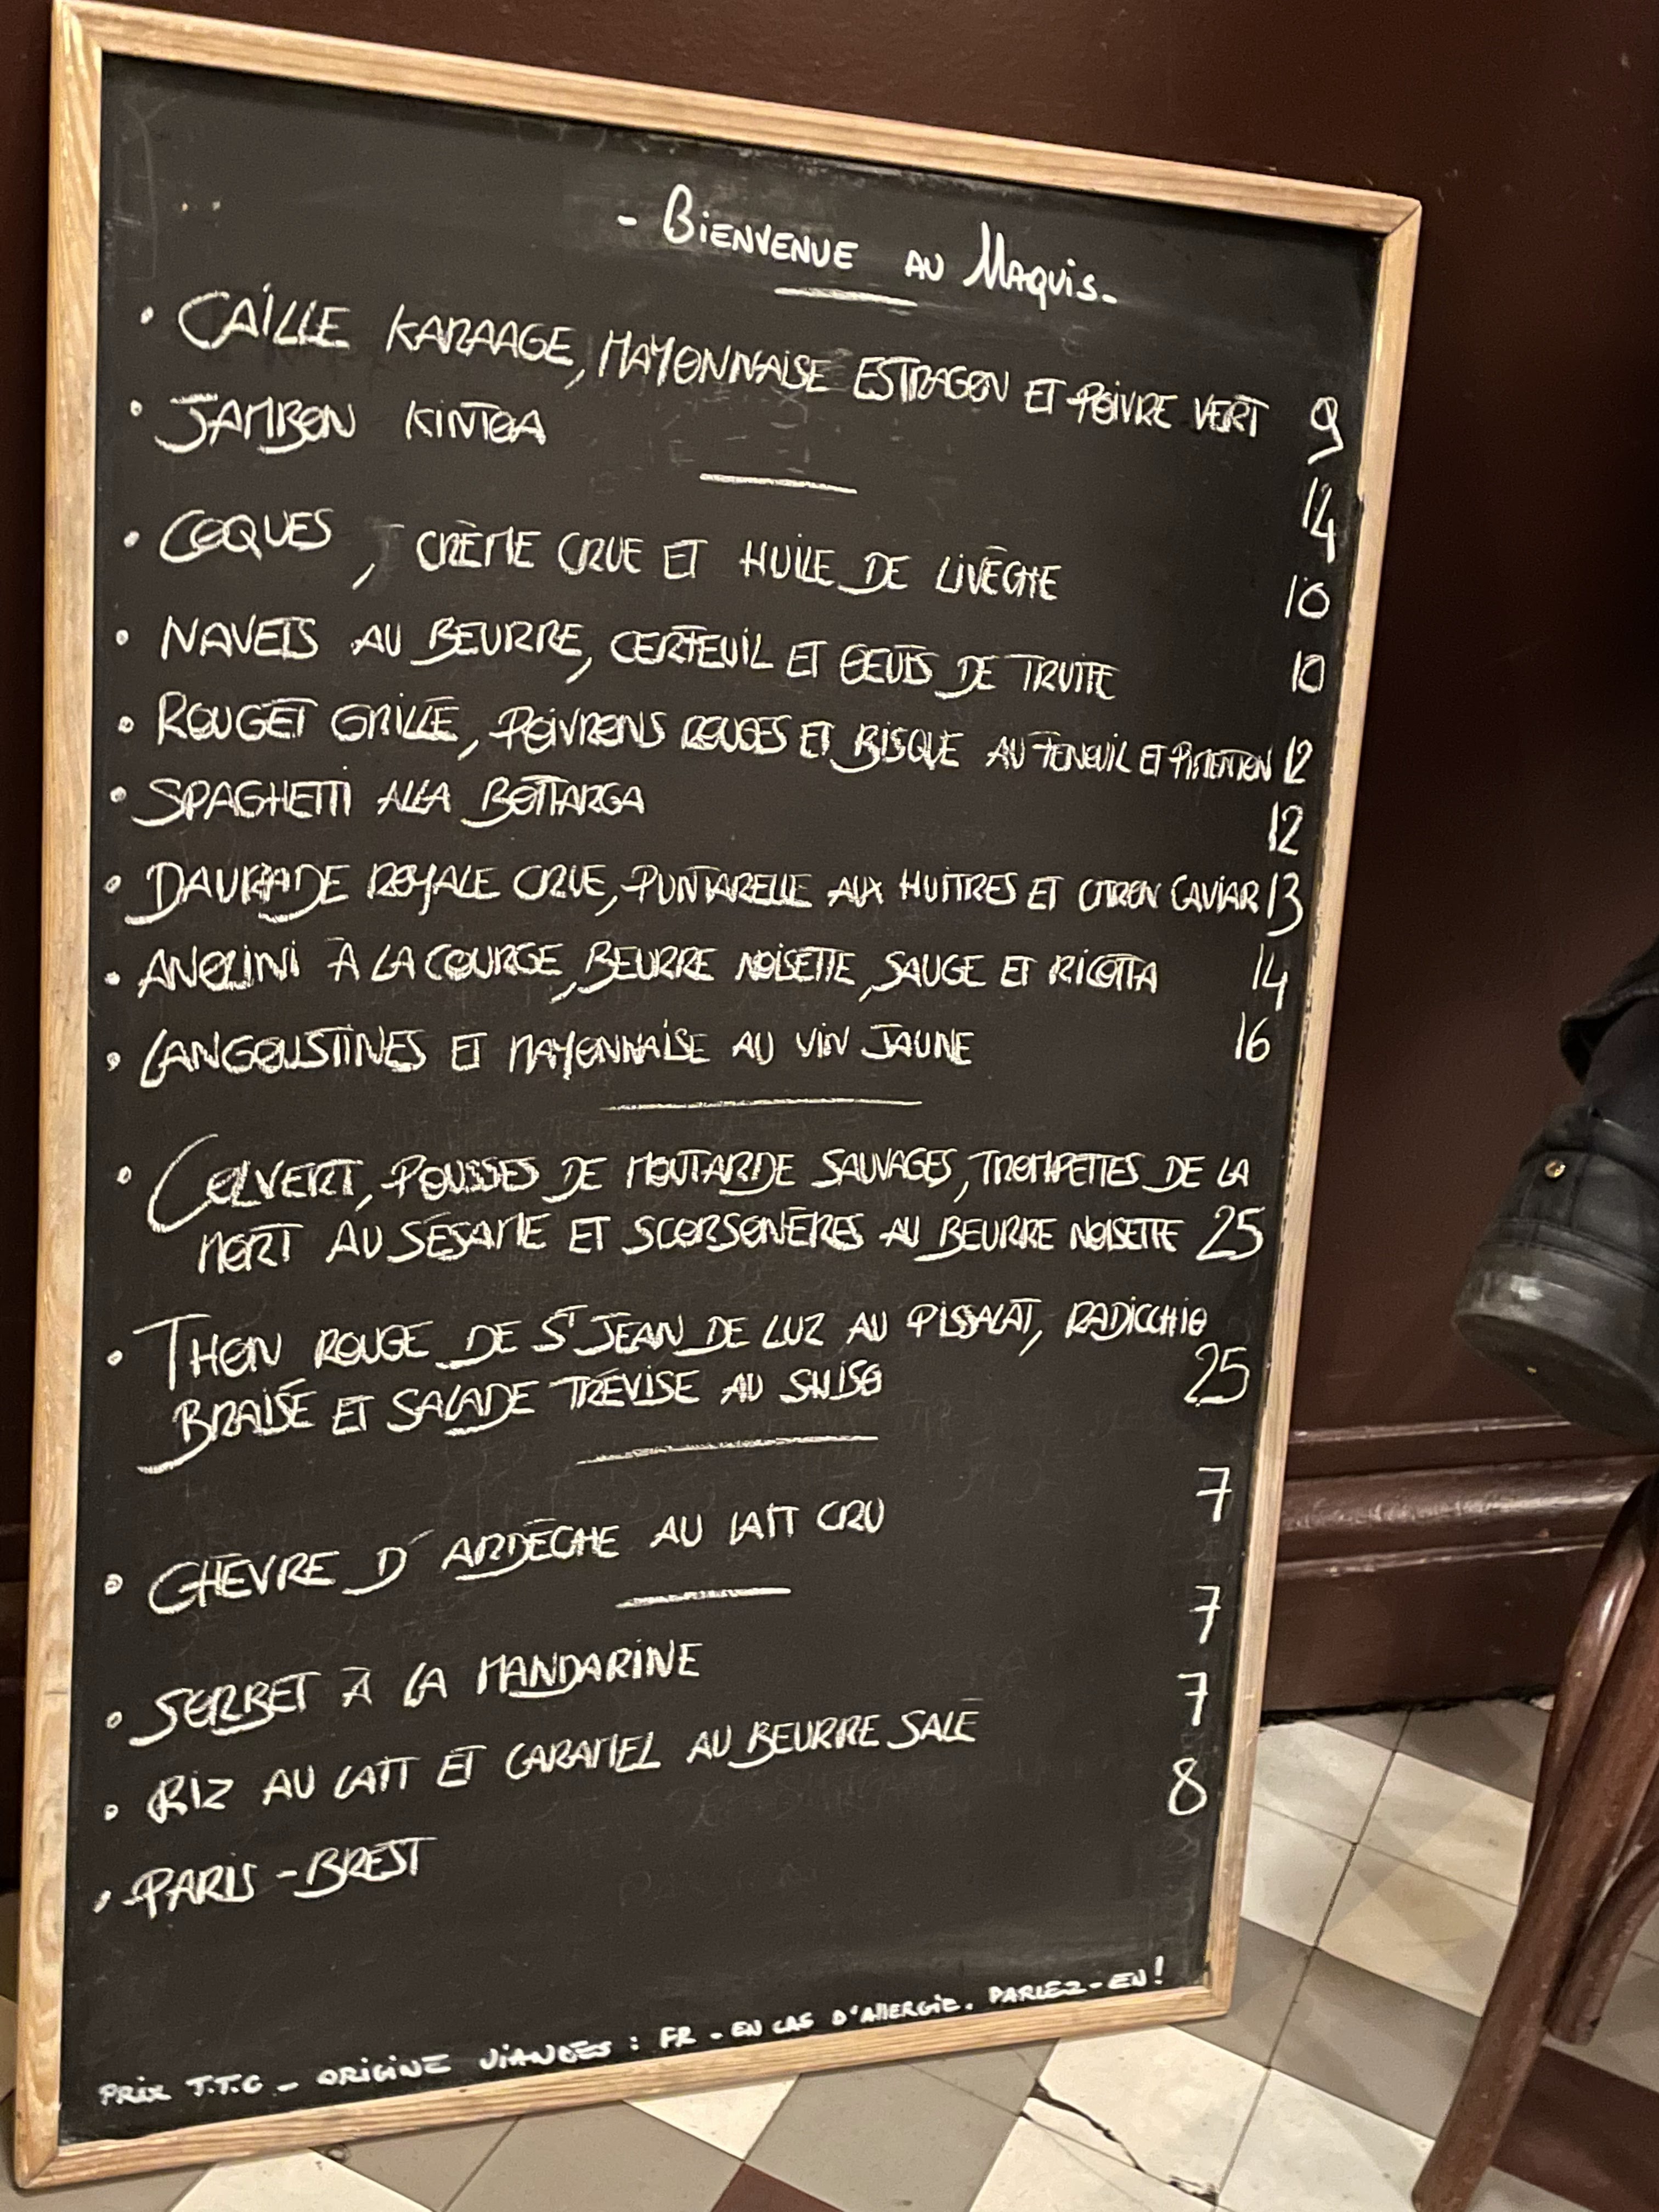 - Bienvenue au Maquis -
• CAILLE KARAAGE, MAYONNAISE ESTRAGON ET POIVRE VERT 9
• JAMBON KINTOA 14
• COQUES, CRÈME CRUE ET HUILE DE LIVÈCHE 10
• NAVETS AU BEURRE, CERFEUIL ET OEUFS DE TRUITE 10
• ROUGET GRILLÉ, POIVRONS ROUGES ET BISQUE AU FENOUIL ET PIMENTON 12
• SPAGHETTI ALLA BOTTARGA 12
• DAURADE ROYALE CRUE, PUNTARELLE AUX HUITRES ET CITRON CAVIAR 13
• ANOLINI À LA COURGE, BEURRE NOISETTE, SAUGE ET RICOTTA 14
• LANGOUSTINES ET MAYONNAISE AU VIN JAUNE 16
• COLVERT, POUSSES DE MOUTARDE SAUVAGES, TROMPETTES DE LA
MORT AU SÉSAME ET SCORSONÈRES AU BEURRE NOISETTE 25
• THON ROUGE DE ST JEAN DE LUZ AU PISSALAT, RADICCHIO
BRAISÉ ET SALADE TRÉVISE AU SHISO 25
• CHÈVRE D'ARDÈCHE AU LAIT CRU 7
• SORBET À LA MANDARINE 7
• RIZ AU LAIT ET CARAMEL AU BEURRE SALÉ 7
• PARIS-BREST 8
PRIX T.T.C - ORIGINE VIANDES : FR - EN CAS D'ALLERGIE. PARLEZ-EN !